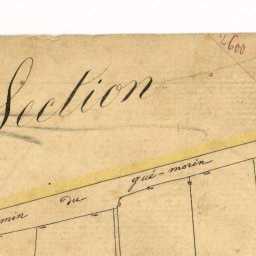 Section
2600
min du gué-morin